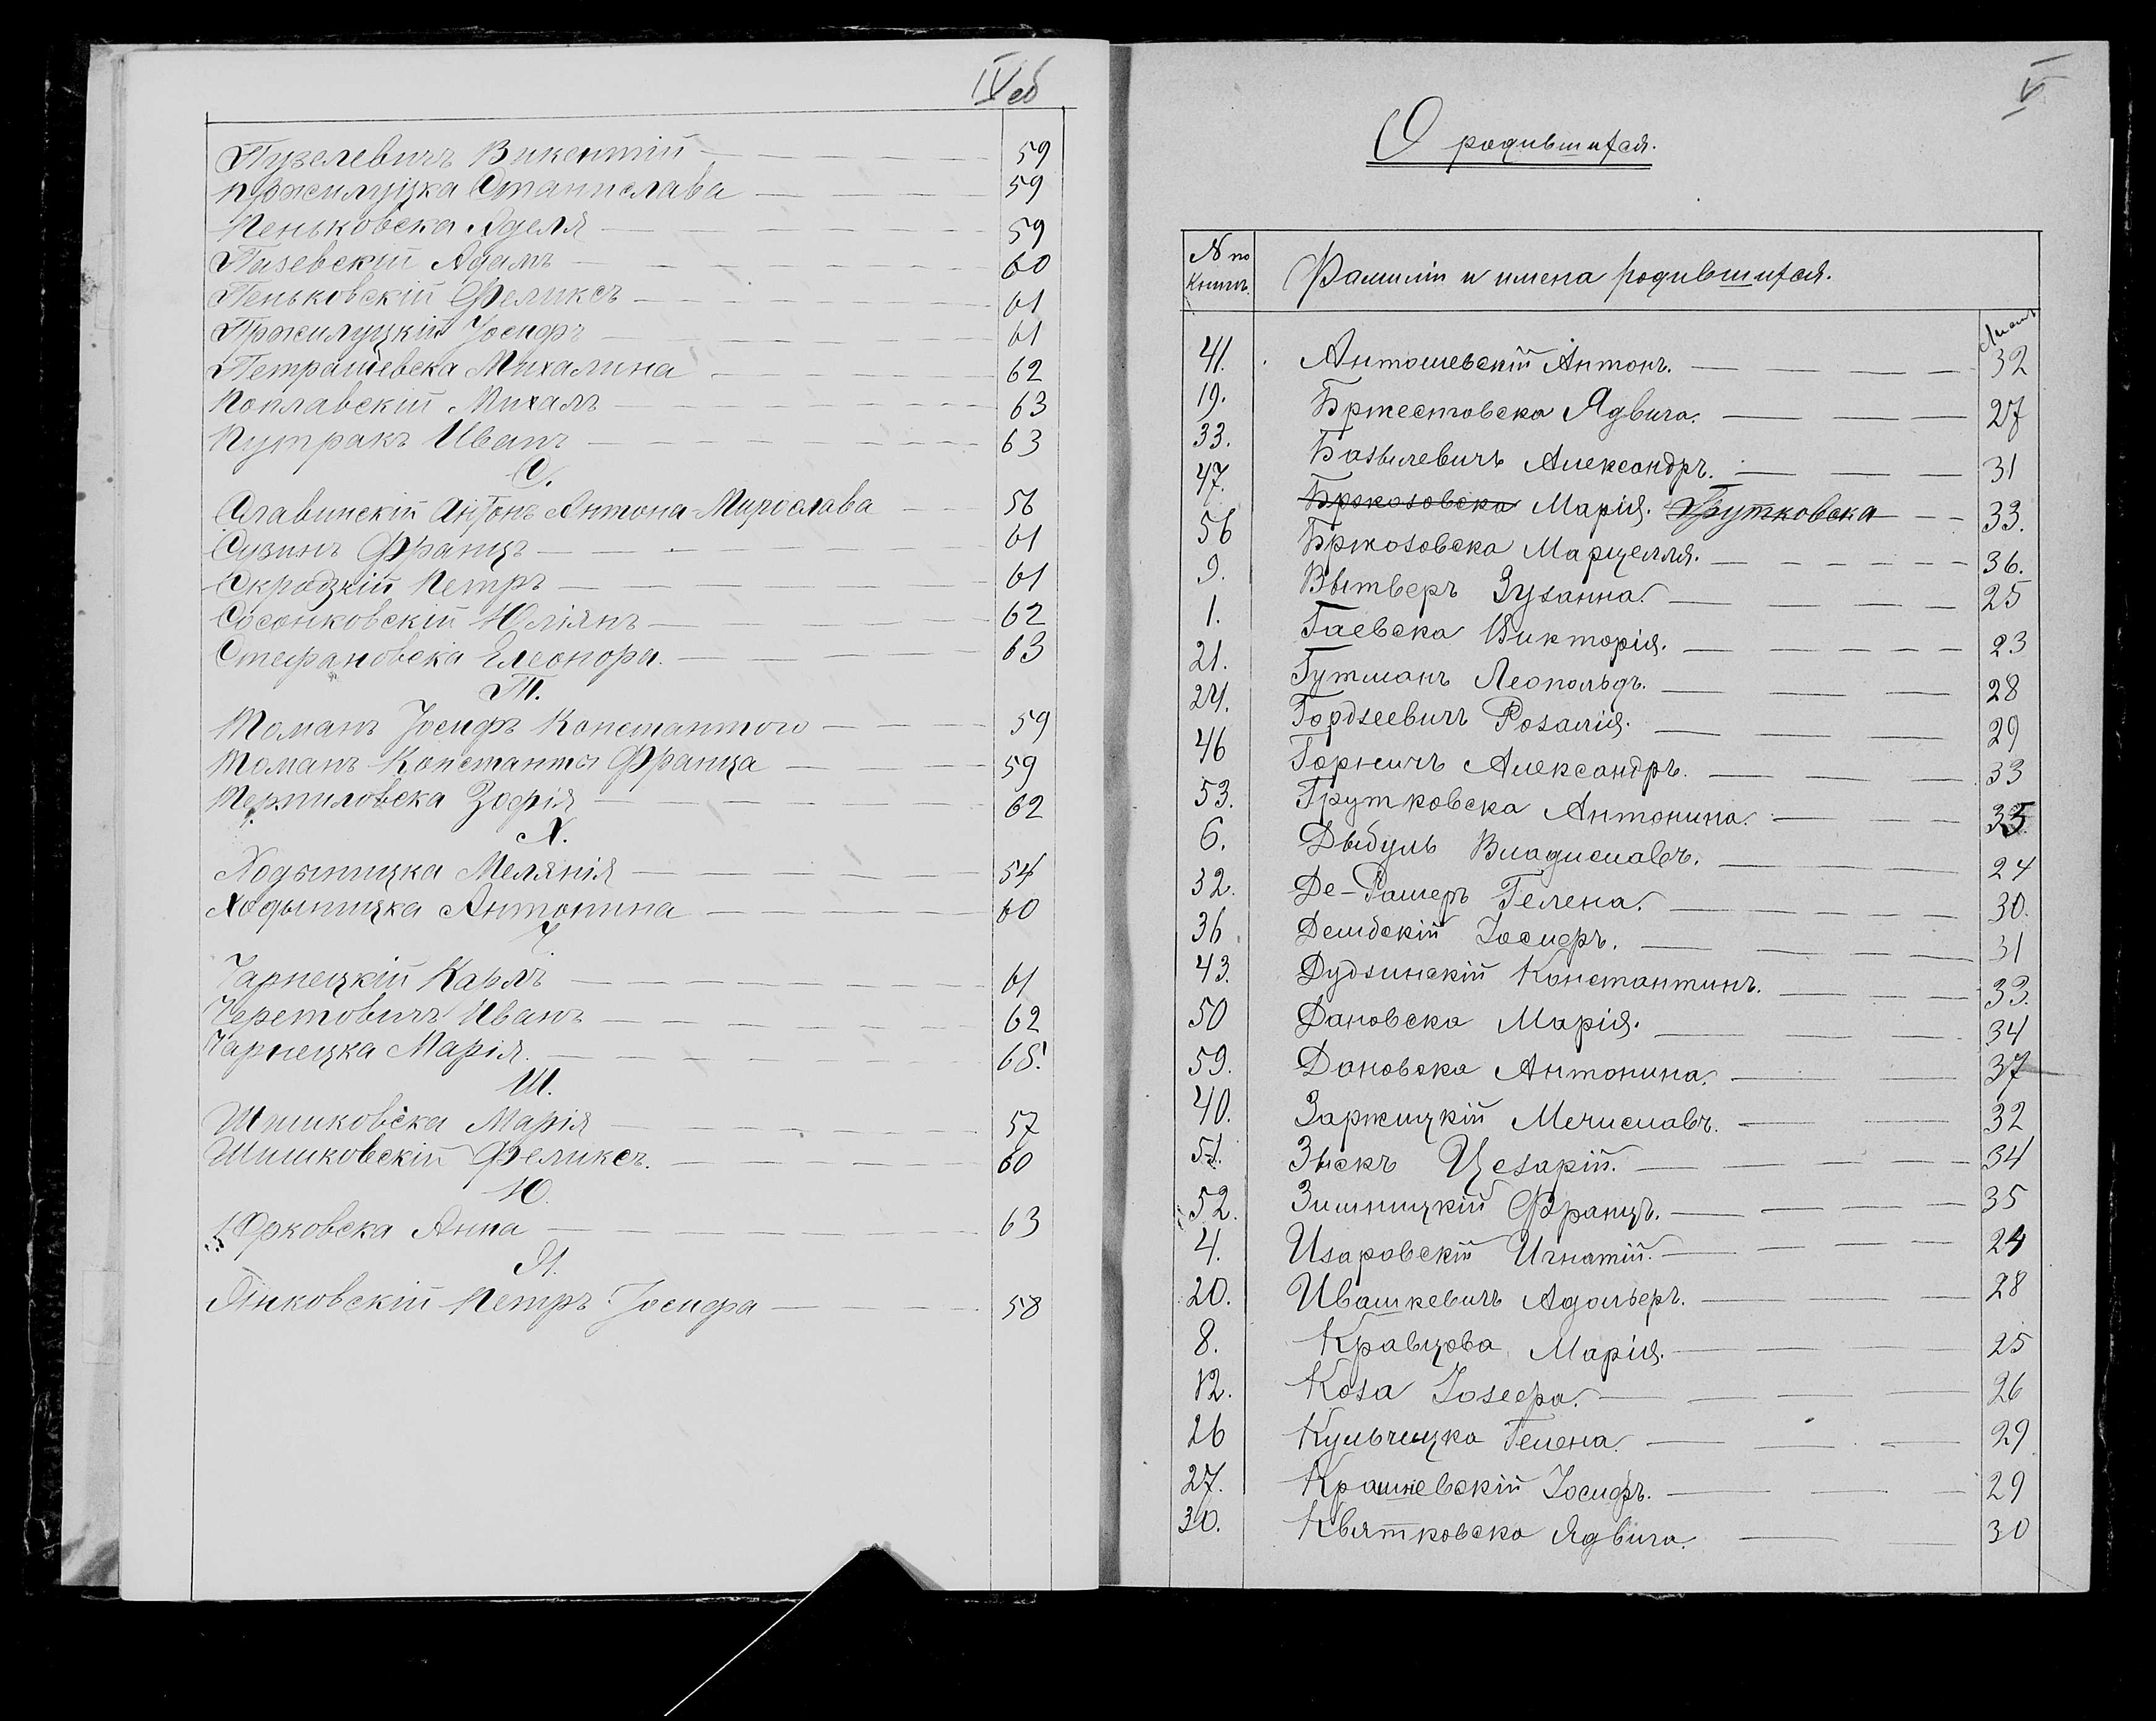 IV об
Пузелевичъ Викентій 59
Пржилуцка Станислава 59
Пеньковска Аделя 59
Пазевскій Адамъ 60
Пеньковскій Феликсъ 61
Пржилуцкій Іосифъ 61
Петрашевска Михалина 62
Поплавскій Михалъ 63
Путракъ Иванъ 63
С.
Славинскій Антонъ Антона-Мирослава 56
Сузинъ Францъ 61
Скродзкій Петръ 61
Сосонковскій Юліянъ 62
Стефановска Елеонора. 63
Т.
Томанъ Іосифъ Константого 59
Томанъ Константы Франца 59
Терпиловска Зофія 62
Х.
Ходыницка Мелянія 54
Ходыницка Антонина 60
Ч.
Чарнецкій Карлъ 61
Черетовичъ Иванъ 62
Чарнецка Марія. 65.
Ш.
Шишковска Марія 57
Шишковскій Феликсъ. 60
Ю.
Юрковска Анна 63
Я.
Янковскій Петръ Іосифа 58
V
О родившихся.
N по Книгѣ. Фамиліи и имена родившихся.
Листъ
41. Антошевскій Антонъ. 32
19. Бржестовска Ядвига. 27
33. Базылевичъ Александръ. 31
47. Бржозовска Марія. Грутковска 33.
56 Бржозовска Марцелля. 36.
9. Вытверъ Зузанна. 25
1. Гаевска Викторія. 23
21. Гутманъ Леопольдъ. 28
24. Гордзеевичъ Розалія. 29
46 Горничъ Александръ. 33
53. Грутковска Антонина. 35
6. Дыбуль Владиславъ. 24
32. Де-Рашеръ Гелена. 30.
36. Дембскій Іосифъ. 31
43. Дудзинскій Константинъ. 33.
50 Дановска Марія. 34
59. Дановска Антонина. 37
40. Заржицкій Мечиславъ. 32
51. Зыскъ Цезарій. 34
52. Зимницкій Францъ. 35
4. Изаровскій Игнатій. 24
20. Ивашкевичъ Адольфъ. 28
8. Кравцова Марія. 25
12. Коза Іозефа. 26
26 Кульчицка Гелена. 29
27. Крашневскій Іосифъ. 29
30. Квятковска Ядвига. 30